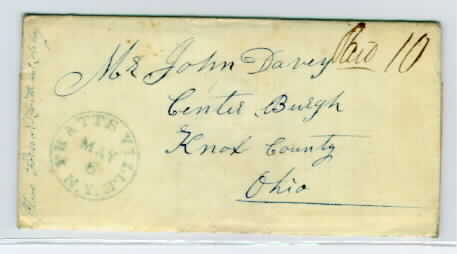 Mr John Davey
Paid 10
Center Burgh
Knox County
Ohio
PRATTSVILLE N.Y.
MAY
6